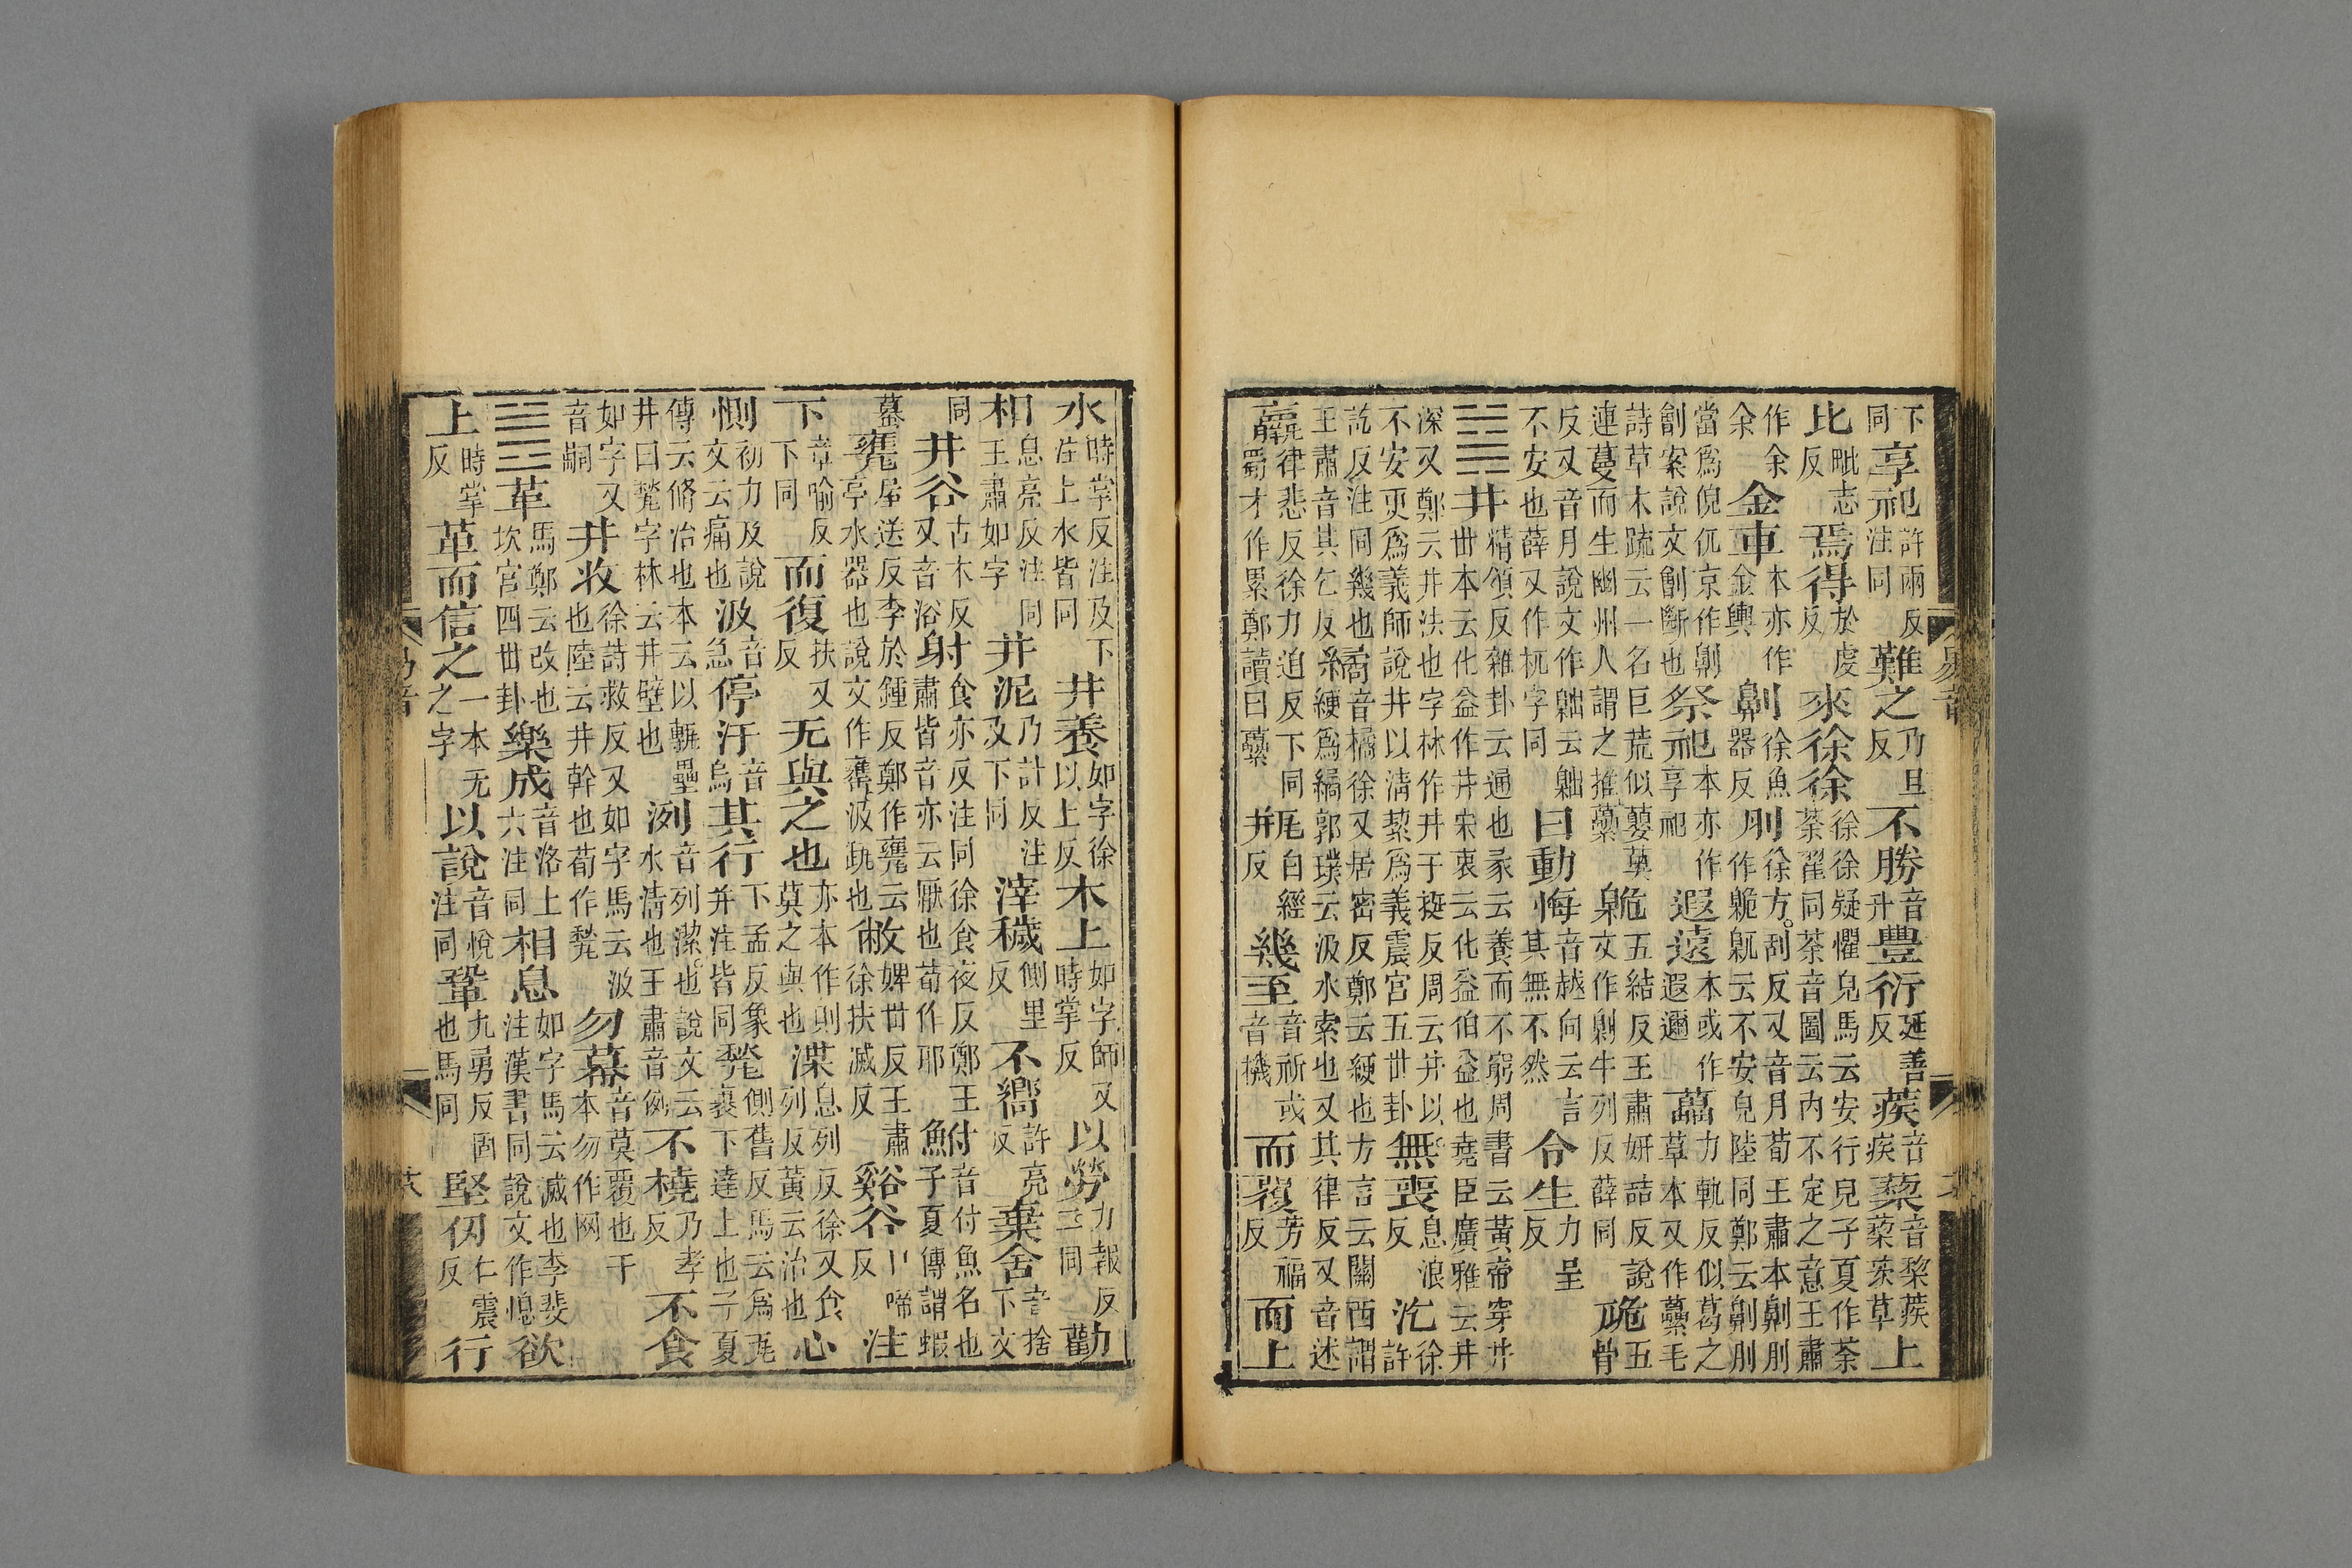 下同享祀許兩反注同難之乃旦反不勝音升豊衍延善反蒺音疾蔾音梨蒺蔾茨草上
比毗志反焉得於虔反來徐徐徐徐疑懼皃馬云安行皃子夏作荼荼翟同荼音圖云内不定之意王肅
作余余金車本亦作金輿劓徐魚器反刖徐方刮反又音月荀王肅本劓刖作臲卼云不安皃陸同鄭云劓刖
當爲倪㐳京作劓劊案說文劊斷也祭祀本亦作享祀遐遠本或作遐邇藟力軌反似葛之草本又作虆毛
詩草木疏云一名巨荒似蘡薁連蔓而生幽州人謂之推虆臲五結反王肅妍喆反說文作劓牛列反薛同卼五骨
反又音月說文作䠳云䠳不安也薛又作杌字同曰動悔音越向云言其無不然令生力呈反
䷯井精領反雜卦云通也彖云養而不窮周書云黃帝穿井世本云化益作井宋衷云化益伯益也堯臣廣雅云井
深又鄭云井法也字林作丼于挻反周云井以不安更爲義師說井以清絜爲義震宮五世卦無喪息浪反汔徐許
訖反注同幾也王肅音其乞反繘音橘徐又居密反鄭云綆也方言云關西謂綆爲繘郭璞云汲水索也又其律反又音述
羸律悲反徐力追反下同蜀才作累鄭讀曰虆瓶白經反幾至音祈或音機而覆芳福反而上
易音
水時掌反注及下注上水皆同井養如字徐以上反木上如字師又時掌反以勞力報反注同勸
相息亮反注同王肅如字井泥乃計反注及下同滓穢側里反不嚮許亮反棄舍音捨下文
同井谷古木反又音浴射食亦反注同徐食夜反鄭王肅皆音亦云厭也荀作耶鮒音付魚名也子夏傳謂蝦
蟇甕屋送反李於鍾反鄭作甕云亭水器也說文作罋汲缾也敝婢世反王肅徐扶滅反谿谷口啼反注
下章喻反下同而復扶又反无與之也亦本作則莫之與也渫息列反徐又食列反黃云治也心
惻初力反說文云痛也汲音急停汙音烏其行下孟反象并注皆同甃側舊反馬云爲瓦裏下達上也子夏
傳云脩治也本云以甎壘井曰甃字林云井壁也洌音列潔也說文云水清也王肅音例不橈乃孝反不食
如字又音嗣井收徐詩救反又如字馬云汲也陸云井幹也荀作甃勿幕音莫覆也干本勿作网
䷰革馬鄭云改也坎宮四世卦樂成音洛上六注同相息如字馬云滅也李斐注漢書同說文作熄欲
上時掌反革而信之一本无之字以說音悅注同鞏九勇反固也馬同堅仞仁震反行